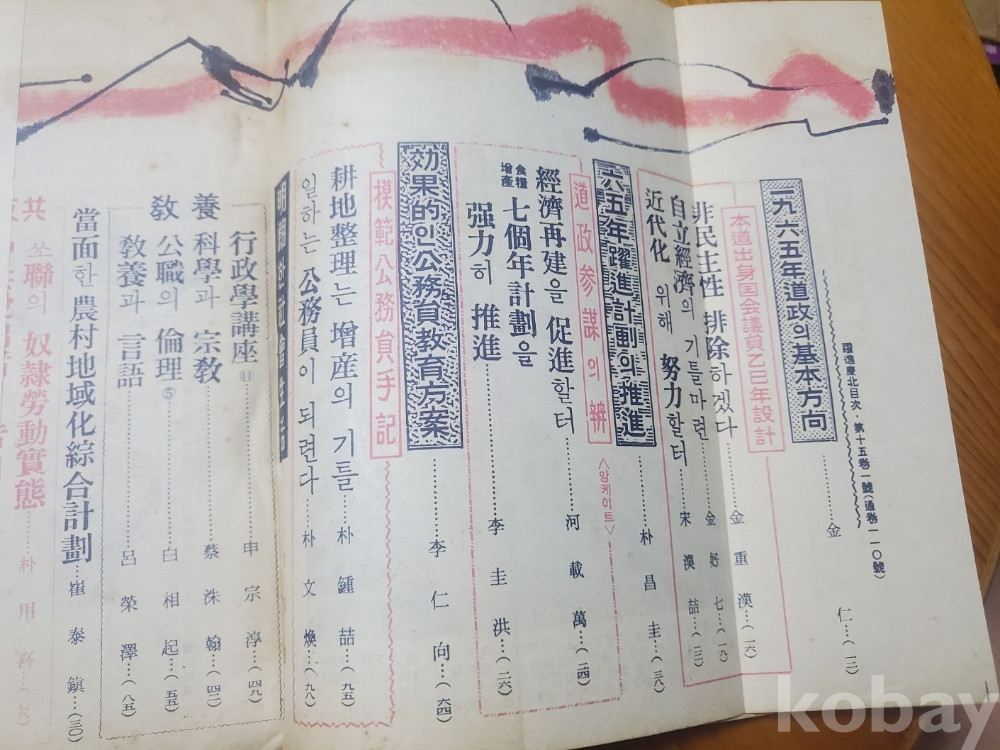 躍進慶北目次·第十五卷一號(通卷一一〇號)
一九六五年道政의基本方向………金 仁…(一二)
本道出身国会議員乙巳年設計
非民主性 排除하겠다……金重漢…(一六)
自立經濟의 기틀마련……金好七…(一九)
近代化 위해 努力할터……宋漢喆…(二二)
六五年躍進計劃의推進………朴昌圭…(三八)
道政參謀의 辨 <앙케이트>
經濟再建을 促進할터……河載萬…(二四)
食糧增產 七個年計劃을 强力히 推進……李圭洪…(二六)
効果的인公務員教育方案………李仁向…(六四)
模範公務員手記
耕地整理는 增産의 기틀…朴鍾喆…(九五)
일하는 公務員이 되련다…朴文煥…(九八)
行政學講座⑪………申宗淳…(四九)
教養
科學과 宗敎………蔡洙翰…(四二)
公職의 倫理⑤………白相起…(五五)
敎養과 言語………呂榮澤…(八五)
當面한 農村地域化綜合計劃…崔泰鎭…(三〇)
쏘聯의 奴隸勞動實態……朴用喜
kobay